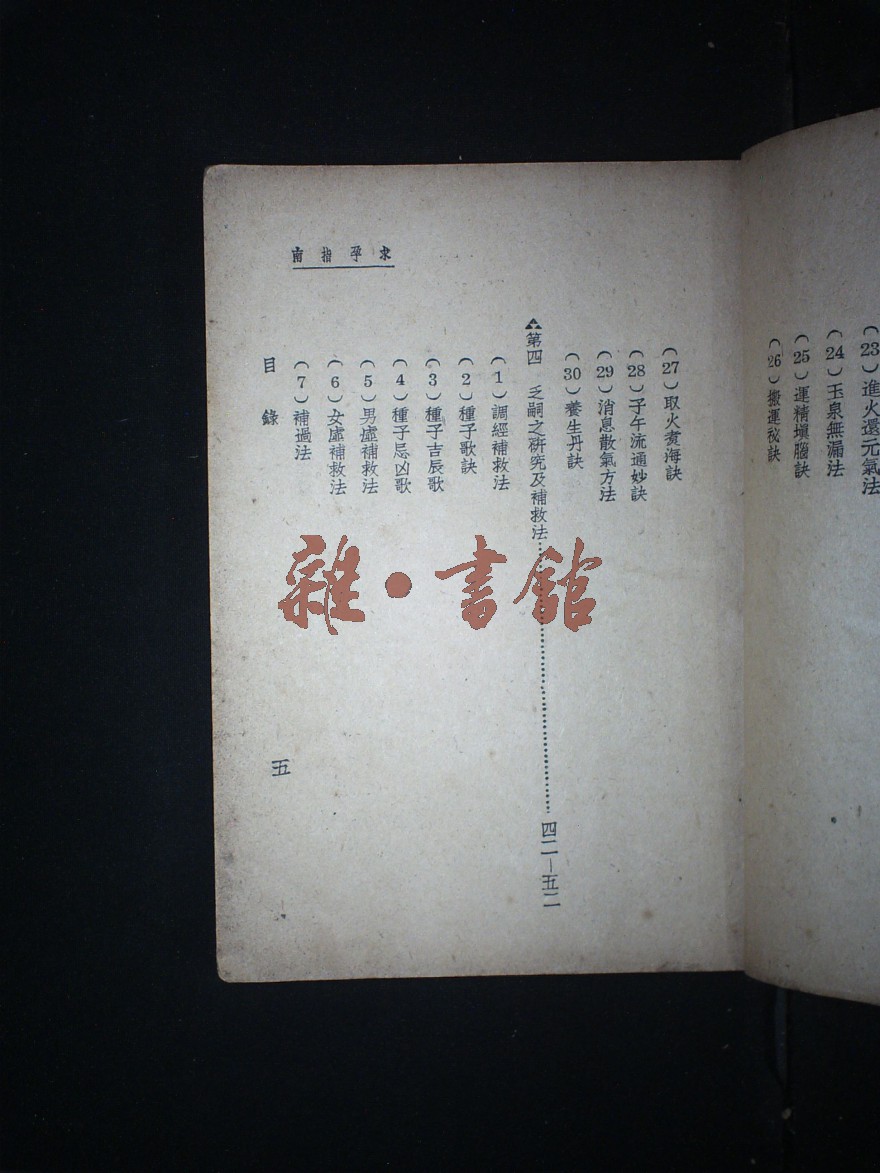 (23)進火還元氣法
(24)玉泉無漏法
(25)運精塡腦訣
(26)搬運祕訣
(27)取火煑海訣
(28)子午流通妙訣
(29)消息散氣方法
(30)養生丹訣
第四 乏嗣之硏究及補救法……四二—五二
(1)調經補救法
(2)種子歌訣
(3)種子吉辰歌
(4)種子忌凶歌
(5)男虛補救法
(6)女虛補救法
(7)補過法
求孕指南
目錄
五
雜·書館